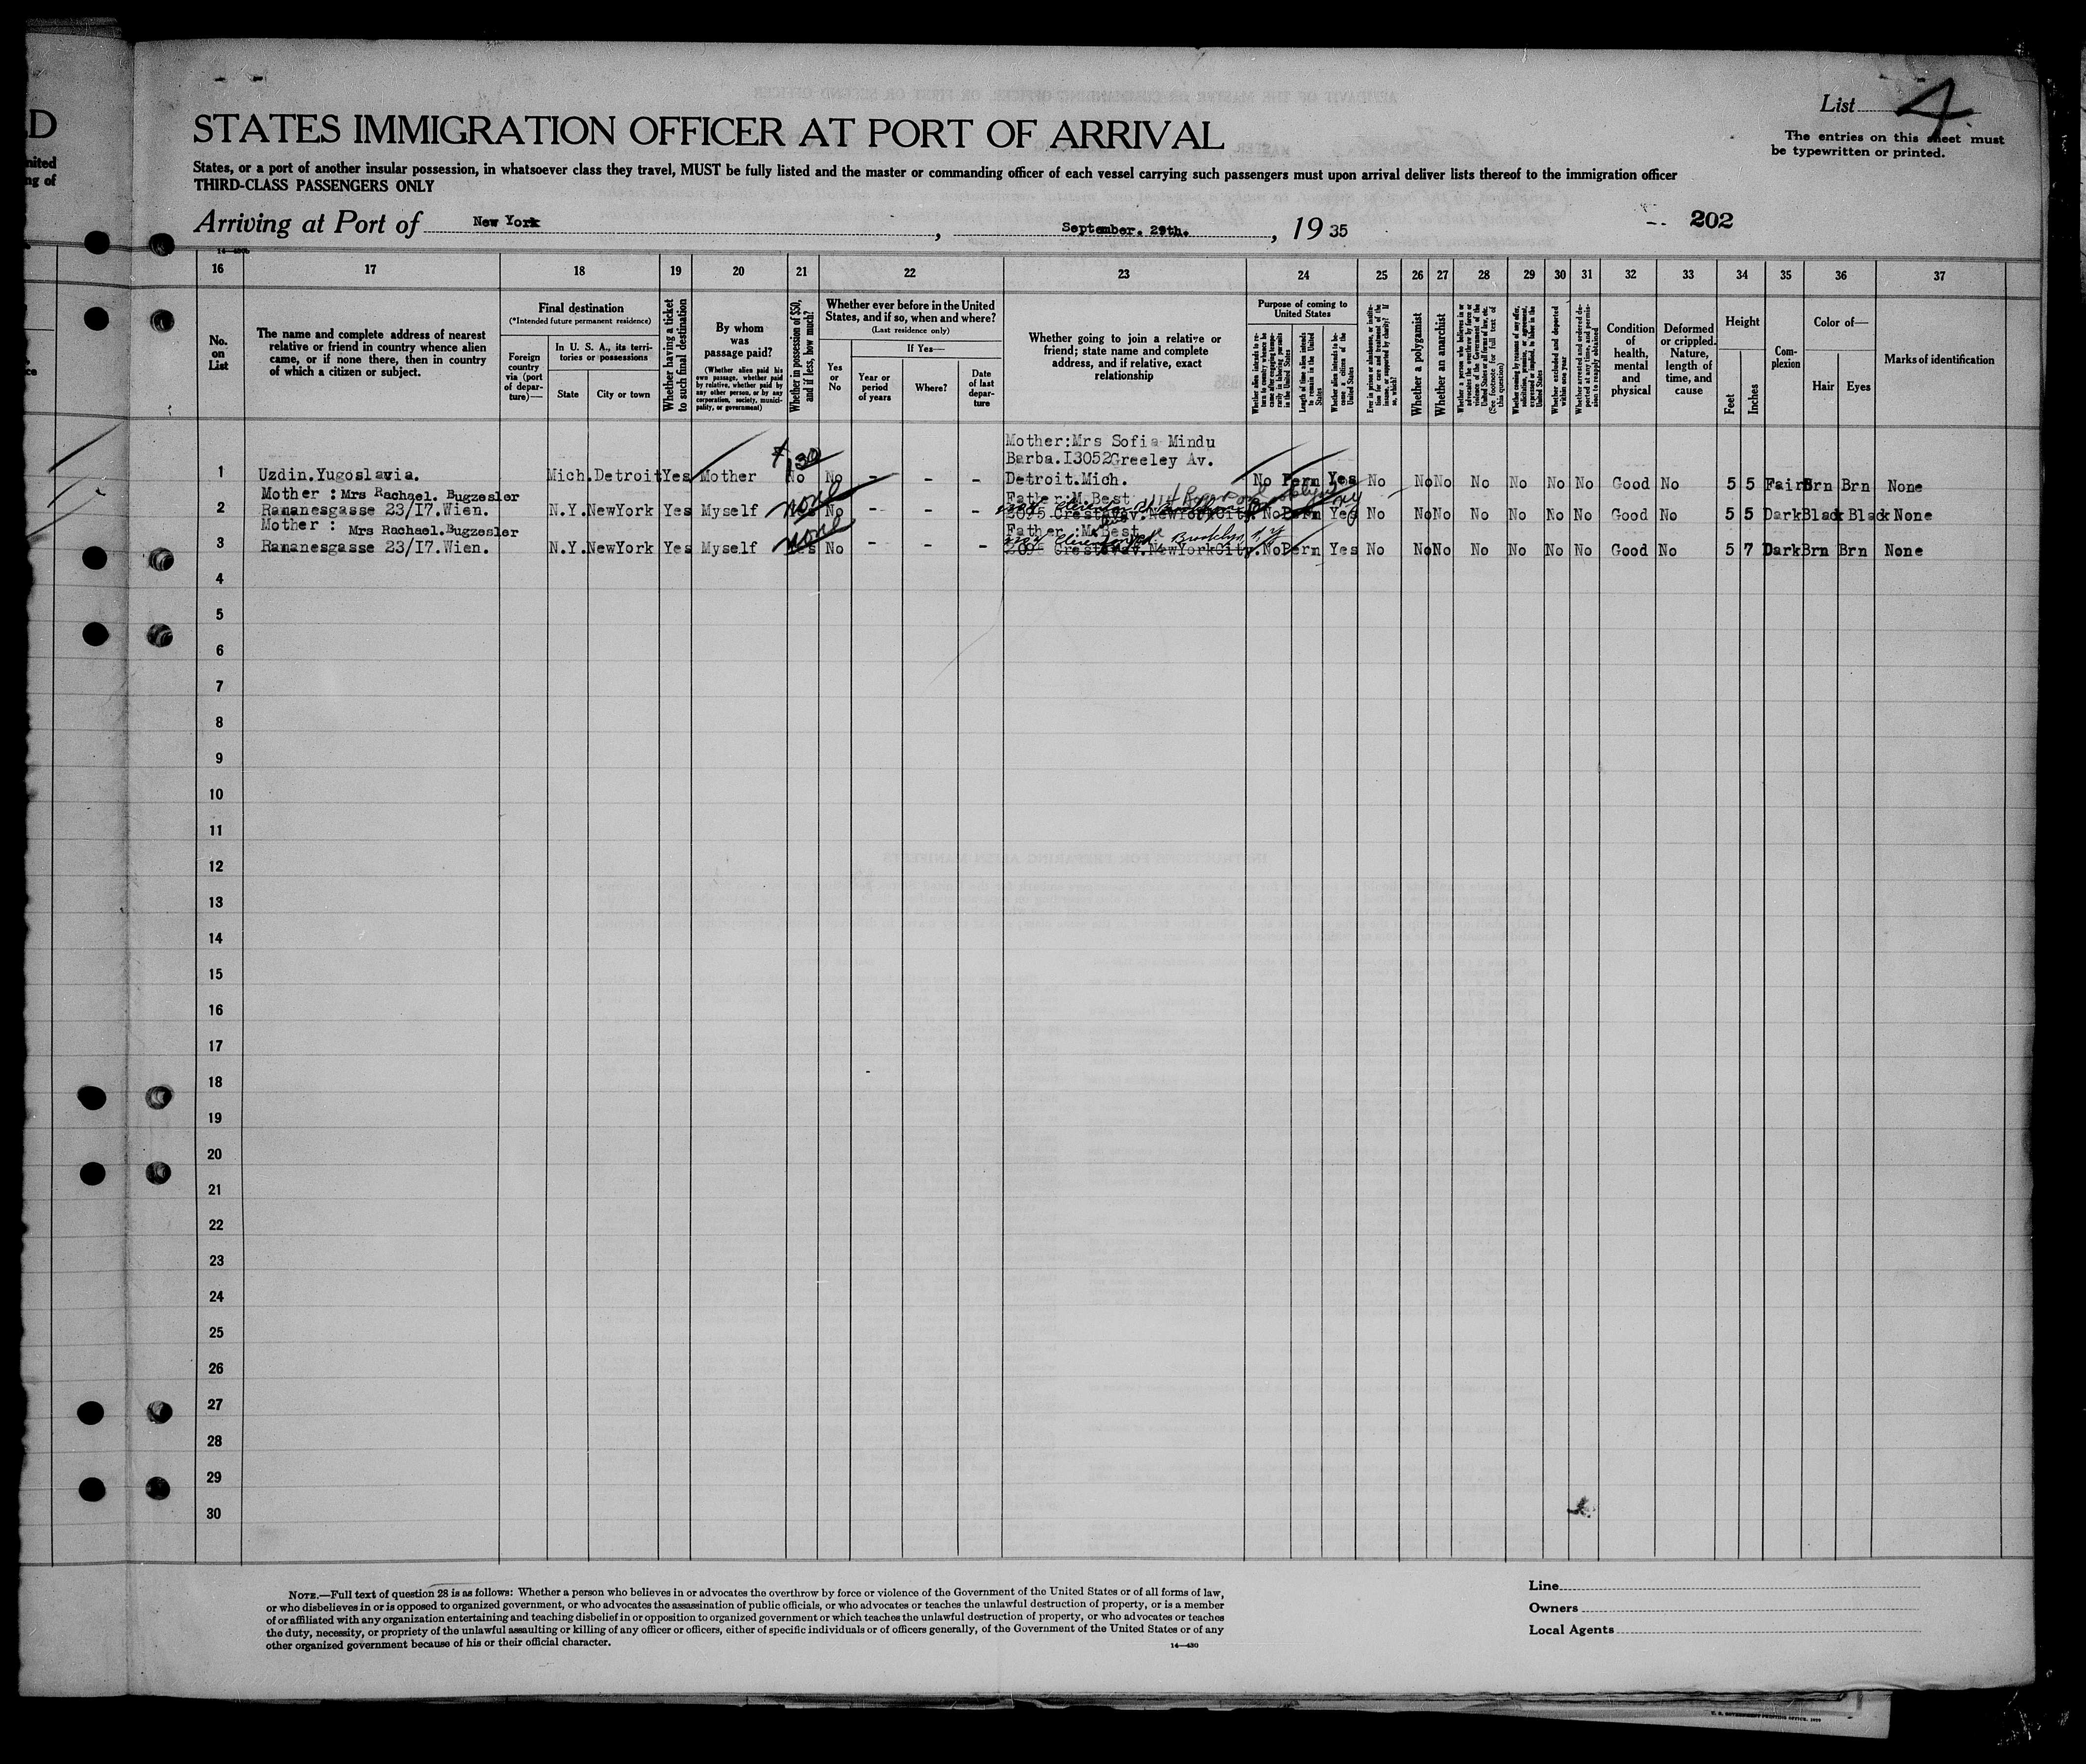 D
nited
ng of
List 4
The entries on this sheet must
be typewritten or printed.
STATES IMMIGRATION OFFICER AT PORT OF ARRIVAL
States, or a port of another insular possession, in whatsoever class they travel, MUST be fully listed and the master or commanding officer of each vessel carrying such passengers must upon arrival deliver lists thereof to the immigration officer
THIRD-CLASS PASSENGERS ONLY
Arriving at Port of New York, September. 29th., 19 35
202
16 17 18 19 20 21 22 23 24 25 26 27 28 29 30 31 32 33 34 35 36 37
No.
on
List
The name and complete address of nearest
relative or friend in country whence alien
came, or if none there, then in country
of which a citizen or subject.
Final destination
(*Intended future permanent residence)
Foreign
country
via (port
of depar-
ture)—
In U. S. A., its terri-
tories or possessions
State
City or town
Whether having a ticket
to such final destination
By whom
was
passage paid?
(Whether alien paid his
own passage, whether paid
by relative, whether paid by
any other person, or by any
corporation, society, munici-
pality, or government)
Whether in possession of $50,
and if less, how much?
Whether ever before in the United
States, and if so, when and where?
(Last residence only)
Yes
or
No
If Yes—
Year or
period
of years
Where?
Date
of last
depar-
ture
Whether going to join a relative or
friend; state name and complete
address, and if relative, exact
relationship
Purpose of coming to
United States
Whether alien intends to re-
turn to country whence he
came after engaging tempo-
rarily in laboring pursuits
in the United States
Length of time alien intends
to remain in the United
States
Whether alien intends to be-
come a citizen of the
United States
Ever in prison or almshouse, or institu-
tion for care and treatment of the
insane, or supported by charity? If
so, which?
Whether a polygamist
Whether an anarchist
(See footnote for full text of
this question)
Whether excluded and deported
within one year
Whether arrested and ordered de-
ported at any time, and permis-
sion to reapply obtained
Condition
of
health,
mental
and
physical
Deformed
or crippled.
Nature,
length of
time, and
cause
Height
Feet
Inches
Com-
plexion
Color of—
Hair
Eyes
Marks of identification
Mother:Mrs Sofia Mindu
Barba.I3052Greeley Av.
1 Uzdin.Yugoslavia. Mich.Detroit Yes Mother No $30 No - - - Detroit.Mich. No Perm Yes No No No No No No No Good No 5 5 Fair Brn Brn None
Mother : Mrs Rachael. Bugzesler Father:M.Best
2 Ramanesgasse 23/I7.Wien. N.Y. NewYork Yes Myself none No - - - 3095 Crestnav.NewYorkCity. No Perm Yes No No No No No No No Good No 5 5 Dark Black Black None
Mother : Mrs Rachael.Bugzesler Father :M.Best
3 Ramanesgasse 23/I7.Wien. N.Y. NewYork Yes Myself none No - - - Brooklyn N.Y NewYorkCity. No Perm Yes No No No No No No No Good No 5 7 Dark Brn Brn None
4
5
6
7
8
9
10
11
12
13
14
15
16
17
18
19
20
21
22
23
24
25
26
27
28
29
30
NOTE.—Full text of question 28 is as follows: Whether a person who believes in or advocates the overthrow by force or violence of the Government of the United States or of all forms of law,
or who disbelieves in or is opposed to organized government, or who advocates the assassination of public officials, or who advocates or teaches the unlawful destruction of property, or is a member
of or affiliated with any organization entertaining and teaching disbelief in or opposition to organized government or which teaches the unlawful destruction of property, or who advocates or teaches
the duty, necessity, or propriety of the unlawful assaulting or killing of any officer or officers, either of specific individuals or of officers generally, of the Government of the United States or of any
other organized government because of his or their official character.
14—430
Line
Owners
Local Agents
U. S. GOVERNMENT PRINTING OFFICE